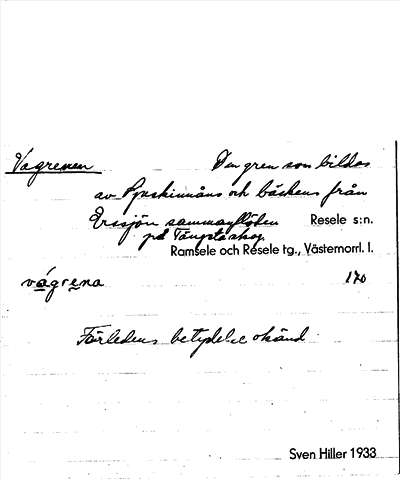 Vagrenen Den gren som bildas
av Opuskinnåns och bäckens från
Erssjön sammanflöden Resele s:n.
på Tängstaskog.
Ramsele och Resele tg., Västernorrl. l.
vágrena 170
Förledens betydelse okänd
Sven Hiller 1933